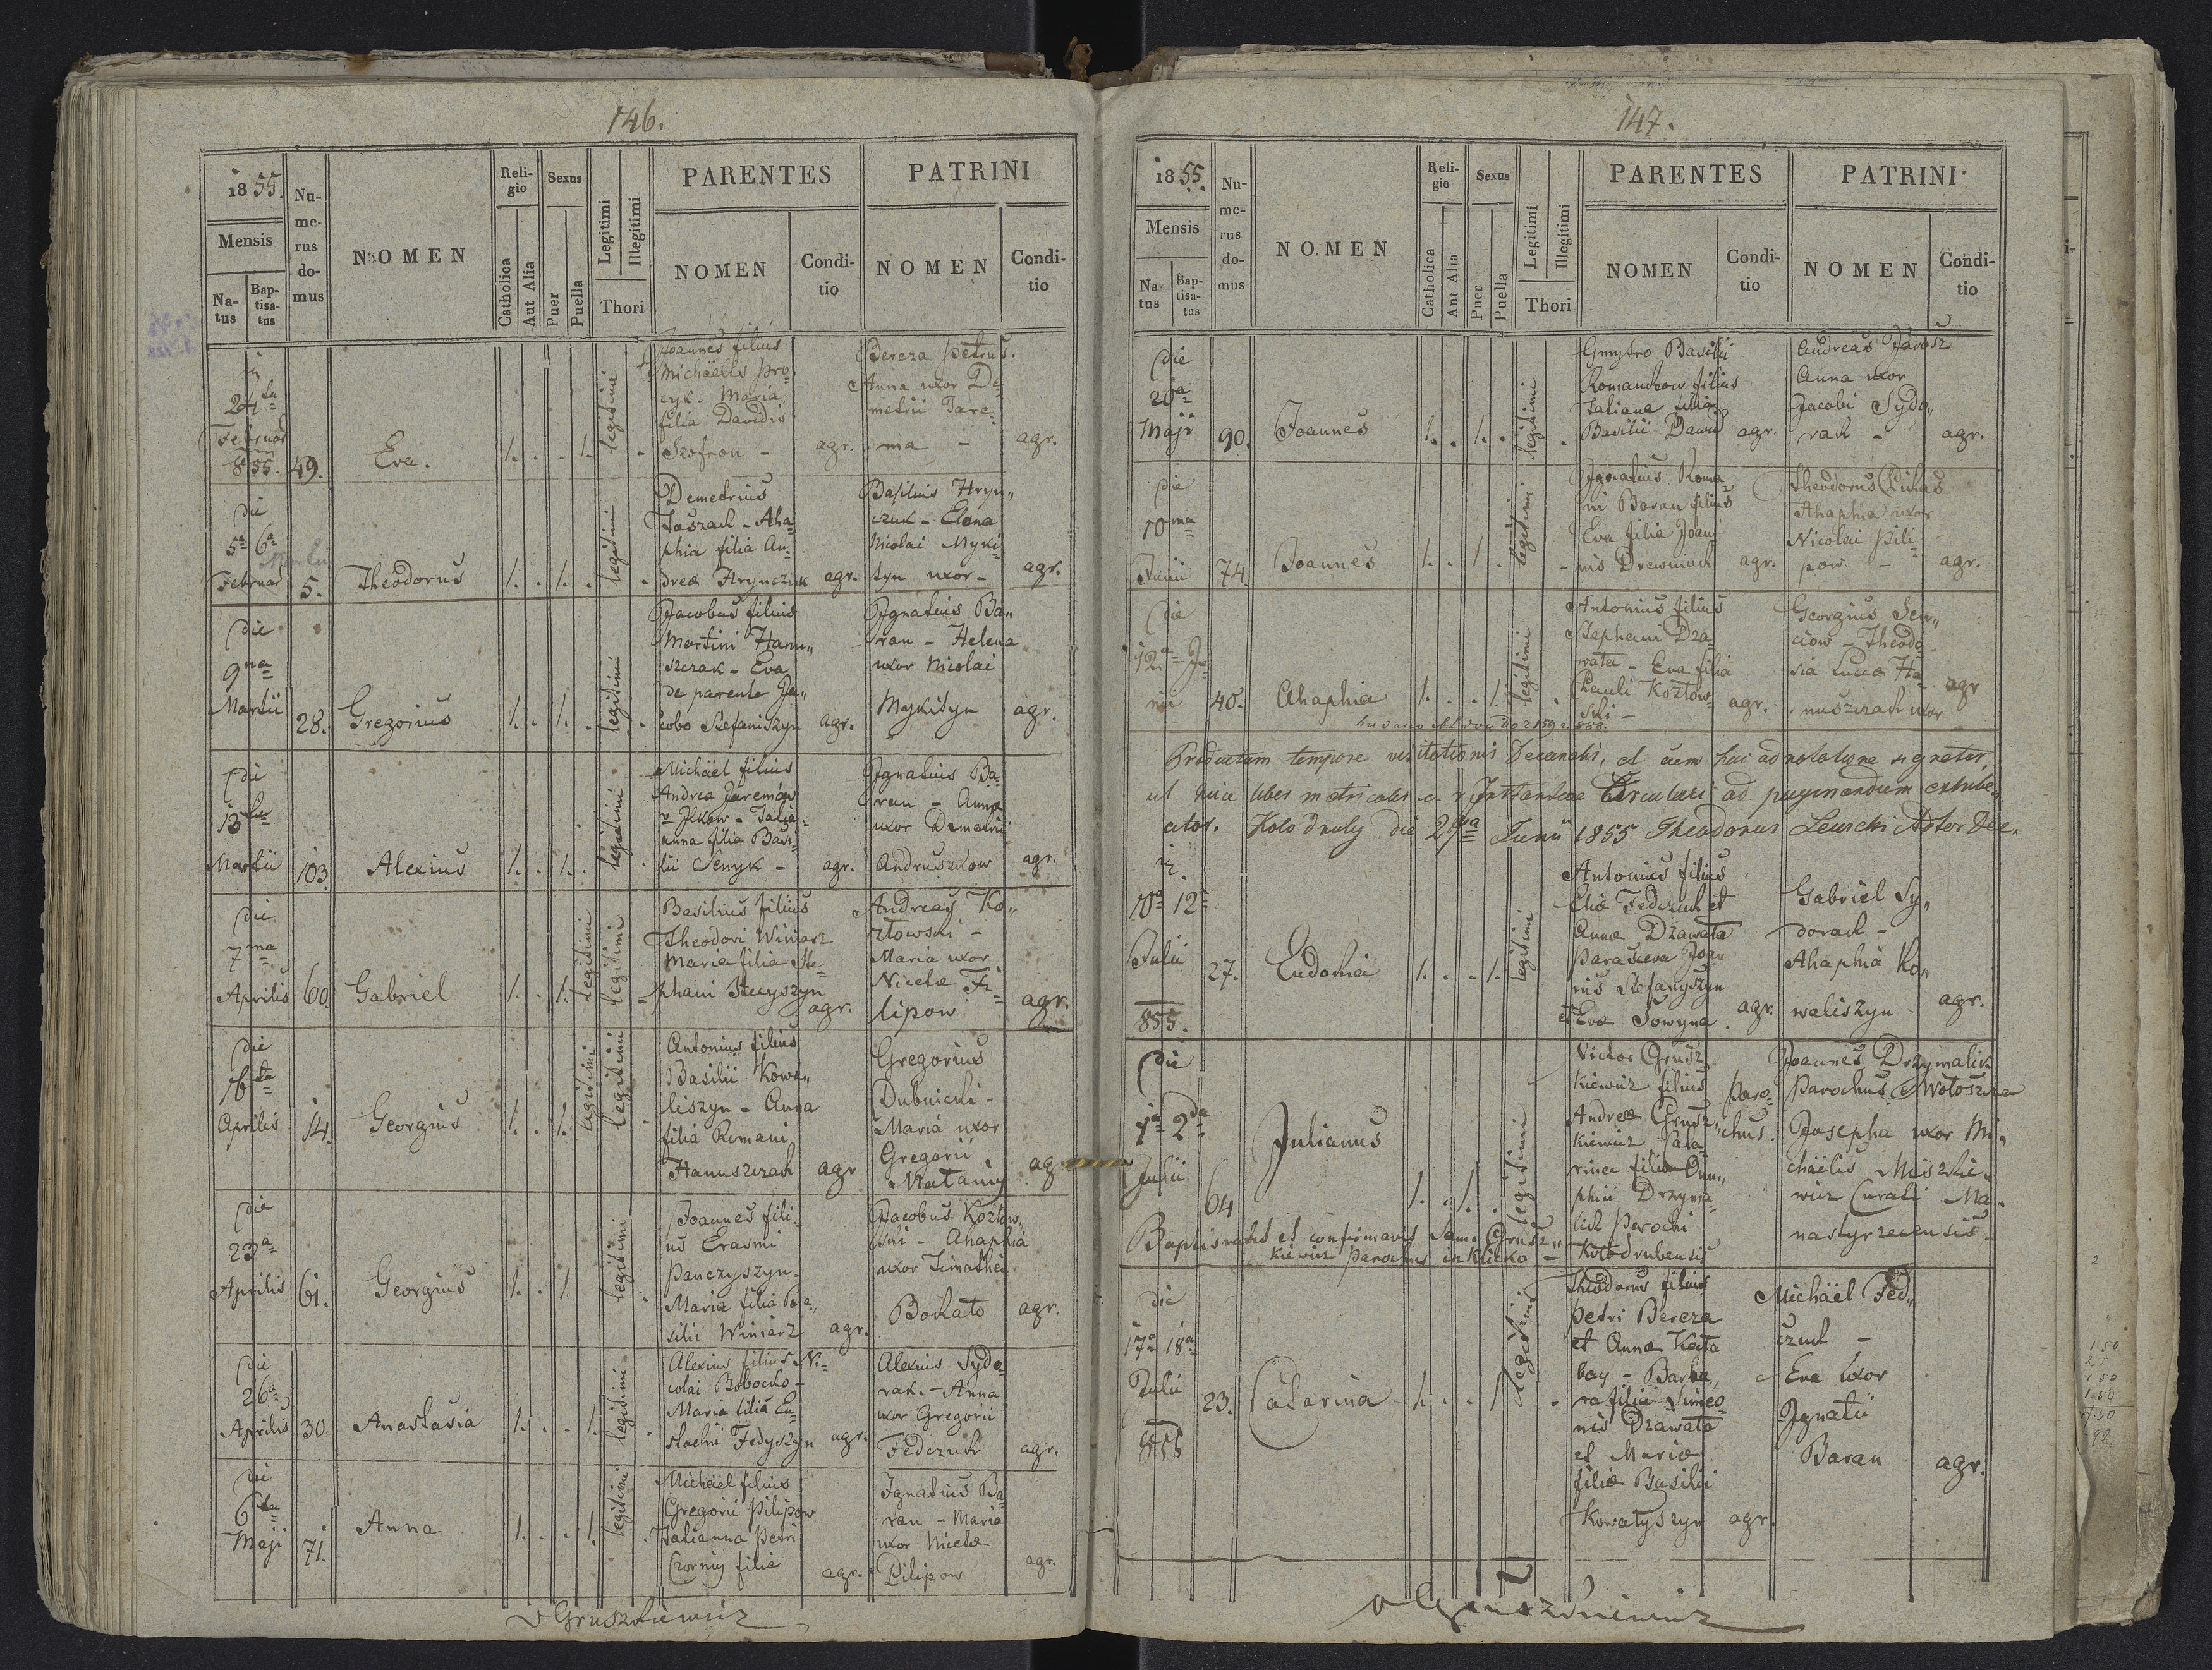 146.
1855.
Mensis
Natus
Baptisatus
Numerus domus
NOMEN
Religio
Catholica
Aut Alia
Sexus
Puer
Puella
Legitimi
Illegitimi
Thori
PARENTES
NOMEN
Conditio
PATRINI
NOMEN
Conditio
24ta
Februar
855.
49.
Eva.
1. . . 1.
legitimi
Joannes filius
Michaëlis Pro=
cyk. Maria
filia Davidis
Szofron -
agr.
Bereza Petrus.
Anna uxor De=
metrii Jare=
ma -
agr.
Die
5a 6a
Martii
Februar
5.
Theodorus
1. . 1. .
legitimi
Demetrius
Jaszach - Aha=
phia filia An=
dreæ Hrynczuk
agr.
Basilius Hryn"
czuk - Elena
Nicolai Myki=
tyn uxor -
agr.
Die
9na
Martii
28.
Gregorius
1. . 1. .
legitimi
Jacobus filius
Martini Hanu"
szczak - Eva
de parente Ja"
cobo Stefaniszyn
agr.
Ignatius Ba"
ran - Helena
uxor Nicolai
Mykityn
agr.
Die
Martii
103.
Alexius
1. . 1. .
legitimi
Michäel filius
Andreæ Jaremów
v Ilków - Tati=
anna filia Basi=
lii Senyk -
agr.
Ignatius Ba=
ran - Anna
uxor Demetrii
Andruszkow
agr.
Die
7ma
Aprilis
60.
Gabriel
1. . 1.
legitimi
legitimi
Basilius filius
Theodori Winiarz
Maria filia Ste=
phani Stecyszyn
agr.
Andreas Ko"
złowski -
Maria uxor
Nicetæ Fi=
lipow
agr.
Die
16ta
Aprilis
14.
Georgius
1. . 1.
legitimi
legitimi
Antonius filius
Basilii Kowa"
liszyn - Anna
filia Romani
Hanuszczach
agr
Gregorius
Dubnicki -
Maria uxor
Gregorii
Matanij
ag
Die
23a
Aprilis
61.
Georgius
1. . 1.
legitimi
Joannes fili=
us Erasmi
Panczyszyn -
Maria filia Ba"
silii Winiarz
agr.
Jacobus Kozłow"
ski - Ahaphia
uxor Timothei
Bokato
agr.
Die
26a
Aprilis
30
Anastasia
1. . . 1.
legitimi
Alexius filius Ni=
colai Bobocko -
Maria filia Eu=
stachii Fedyszyn
agr.
Alexius Sydo=
rak. - Anna
uxor Gregorii
Fedczuk
agr.
Die
6ta
Maji
71.
Anna
1. . . 1.
legitimi
Michäel filius
Gregorii Pilipow
Tatianna Petri
Czorny filia
agr.
Ignatius Ba=
ran - Maria
uxor Nicetæ
Pilipow
agr.
v Gruszkiewicz
147.
1855.
Mensis
Natus
Baptisatus
Numerus domus
NOMEN
Religio
Catholica
Aut Alia
Sexus
Puer
Puella
Legitimi
Illegitimi
Thori
PARENTES
NOMEN
Conditio
PATRINI
NOMEN
Conditio
Die
20a
Maji
90.
Joannes
1. . 1. .
legitimi
Gmytro Basilii
Romankow filius
Tatiana filia
Basilii Dawid
agr.
Andreas Jarosz
Anna uxor
Jacobi Sydo"
rach -
agr.
Die
10ma
Junii
74.
Joannes
1. . 1 .
legitimi
Ignatius Roma=
ni Baran filius
Eva filia Joan
nis Drewniach
agr.
Theodorus
Ahaphia uxor
Nicolai Pili=
pow -
agr.
Die
12a Ju
nii
40.
Ahaphia
1. . . 1.
legitimi
Antonius filius
Stephani Dza
wata - Eva filia
Pauli Kozłow
ski -
agr.
Georgius Sen"
ciow - Theodo
sia Lucæ Ha=
nuszczach uxor
agr
Productum tempore visitationis Decanalis, et cum hac adnotatione signatur,
ut hic liber metricalis Instantiæ Circulari ad paginandum exhibe"
atur. Kołodruby die 29a Junii 1855 Theodorus Lewicki Actor Dec.
10a 12a
Julii
855.
27.
Eudohia
1. . . 1.
legitimi
Antonius filius
Eliæ Fedczuch et
Annæ Dzawata
Parasceva Joan
nis Stefanyszyn
et Evæ Sowyna.
agr.
Gabriel Sy"
dorach -
Ahaphia Ko"
waliszyn
agr.
Die
1a 2da
Julii
64
Julianus
1. . 1. .
legitimi
Victor Grusz
kiewicz filius
Andreæ Grusz"
kiewicz Catha
rina filia Onu"
phrii Drzyma
lich Parochi
Kołodrubensis
Paro=
chus.
Joannes Drzymalich
Parochus Wołoszcza
Josepha uxor Mi"
chäelis Miszkie"
wicz Curati Ma"
nastyrzecensis.
Baptisavit et confirmavit Sam. Grusz"
kiewicz Parochus in Klicko -
Die
17a 18a
Julii
855
23.
Catarina
1. . . 1
legitimi
Theodorus filius
Petri Bereza
et Annæ Kata
bay - Barba"
ra filia Simeo=
nis Dzawata
et Mariæ
filiæ Basilii
Kowałyszyn
agr.
Michäel Fed"
czuch -
Eva uxor
Ignatii
Baran
agr.
v Gruszkiewicz